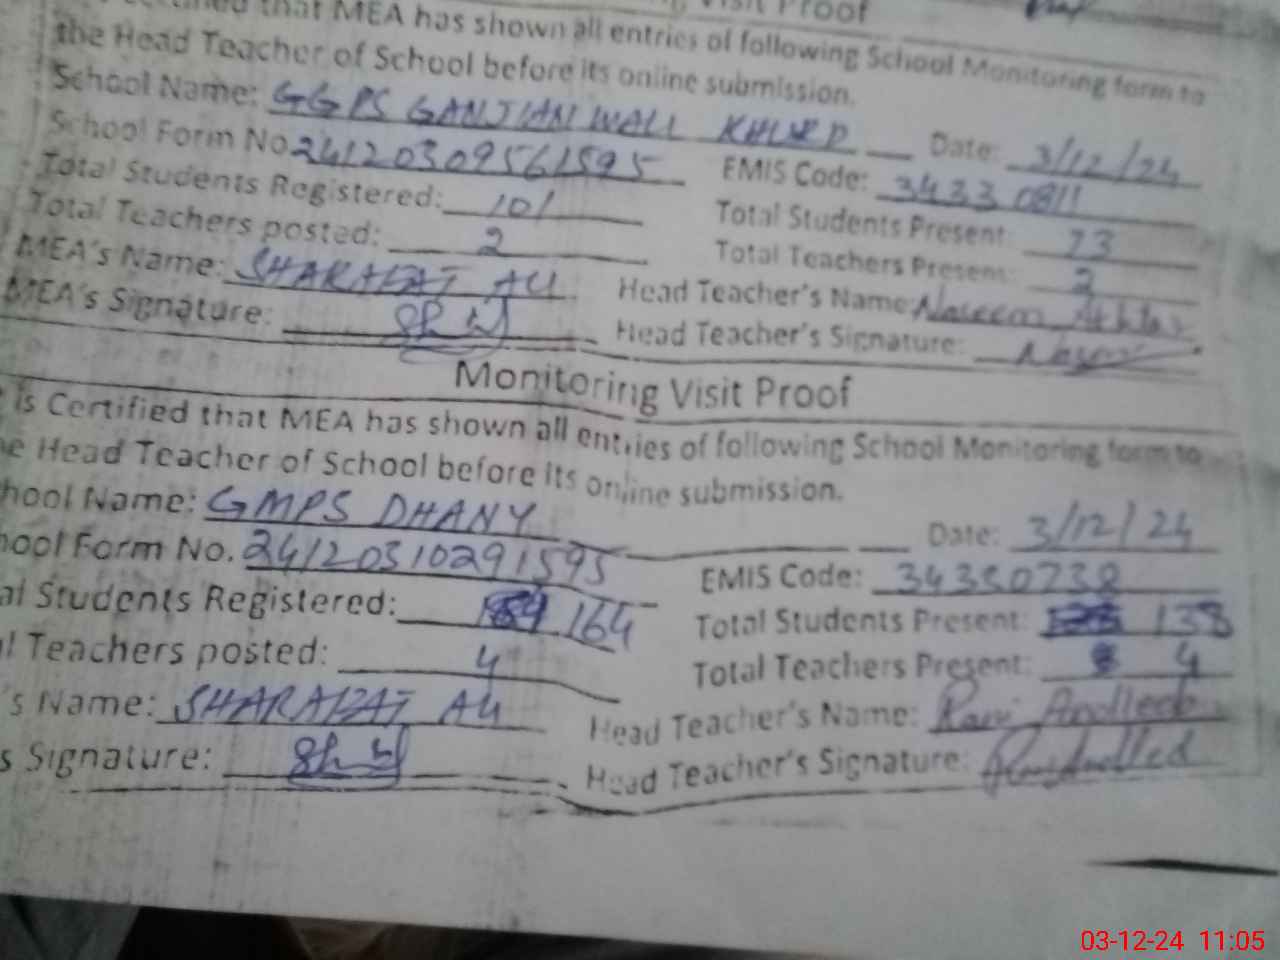 Visit Proof
that MEA has shown all entries of following School Monitoring form to
the Head Teacher of School before its online submission.
School Name: GGPS GANJIANWALI KHURD Date: 3/12/24
School Form No 24120309561595 EMIS Code: 34330811
Total Students Registered: 101 Total Students Present: 73
Total Teachers posted: 2 Total Teachers Present: 2
MEA's Name: SHARAFAT ALI Head Teacher's Name: Naseem Akhtar
MEA's Signature: Head Teacher's Signature:
Monitoring Visit Proof
is Certified that MEA has shown all entries of following School Monitoring form to
e Head Teacher of School before its online submission.
hool Name: GMPS DHANY Date: 3/12/24
hool Form No. 24120310291595 EMIS Code: 34330738
al Students Registered: 164 Total Students Present: 138
l Teachers posted: 4 Total Teachers Present: 4
's Name: SHARAFAT ALI Head Teacher's Name: Rani Andleeb
s Signature: Head Teacher's Signature:
03-12-24 11:05